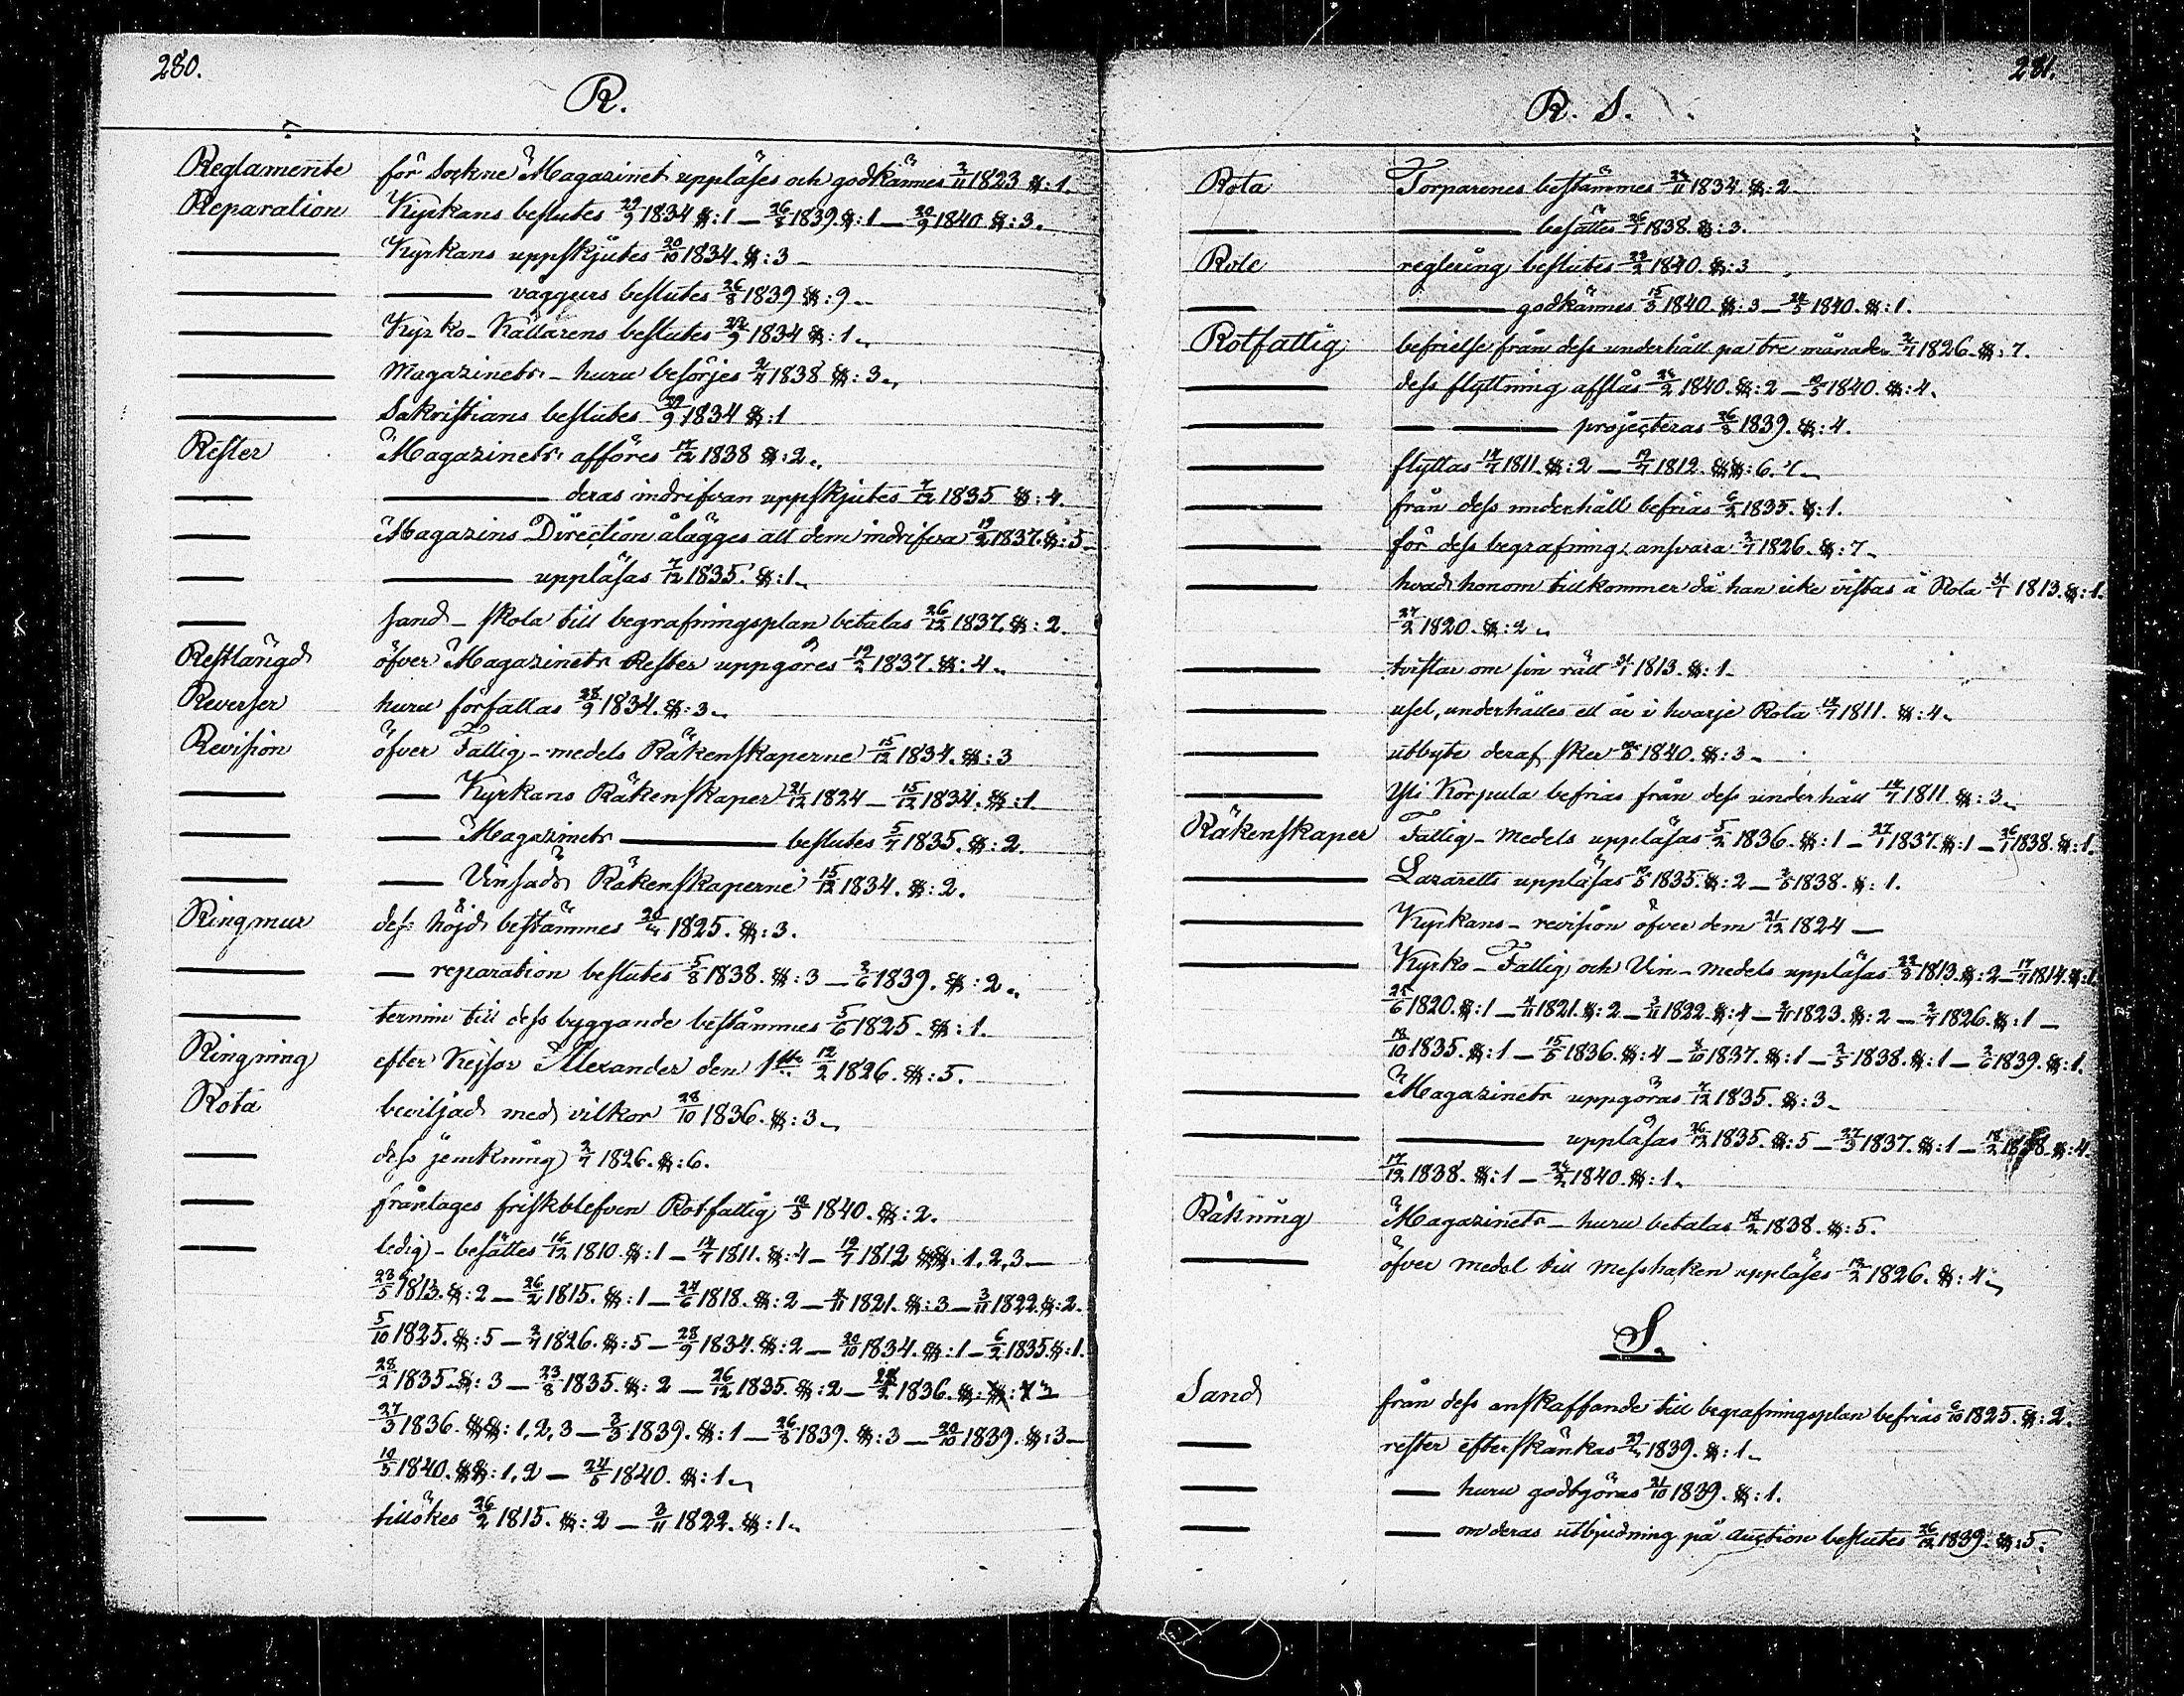 280.
R.
Reglamente för Sockne Magazinet uppläses och godkännes 2/11 1823 §:1.
Reparation Kyrkans beslutes 29/9 1834 §:1 — 26/8 1839. §:1 — 20/9 1840 §:3.
— Kyrkans uppskjutes 20/10 1834. §:3 —
— — väggars beslutes 26/8 1839 §:9 —
— Kyrko-Källarens beslutes 29/9 1834 §:1 —
— Magazinets — huru besörjes 2/4 1838 §:3 —
— Sakristians beslutes 29/9 1834 §:1
Rester Magazinets afföres 17/12 1838 §:2 —
— — deras indrifvan uppskjutes 7/12 1835 §:4.
— Magazins Direction ålägges att dem indrifva 19/2 1837. §:5 —
— — uppläsas 7/12 1835. §:1 —
— Sand — skola till begrafningsplan betalas 26/12 1837. §:2.
Restlängd öfver Magazinets Rester uppgöres 19/2 1837. §:4 —
Reverser huru författas 28/9 1834. §:3 —
Revision öfver Fattig-medels Räkenskaperne 15/12 1834. §:3
— — Kyrkans Räkenskaper 21/12 1824 — 15/12 1834. §:1.
— — Magazinets — beslutes 5/7 1835. §:2.
— — Vinsäds Räkenskaperne 15/12 1834. §:2.
Ringmur dess höjd bestämmes 20/4 1825. §:3.
— — reparation beslutes 5/8 1838. §:3 — 2/6 1839. §:2 —
— termin till dess byggande bestämmes 5/6 1825. §:1.
Ringning efter Kejsar Alexander den 1ste 12/2 1826. §:5.
Rota beviljad med vilkor 28/10 1836. §:3 —
— dess jemkning 2/7 1826. §:6.
— fråntages friskblefven Rotfattig 10/5 1840. §:2.
— ledig — besättes 16/12 1810. §:1 — 14/7 1811. §:4 — 19/7 1812 §§: 1, 2, 3 —
23/5 1813. §:2 — 26/2 1815. §:1 — 24/6 1818. §:2 — 4/11 1821. §:3 — 3/11 1822. §:2.
5/10 1825. §:5 — 2/7 1826. §:5 — 28/9 1834. §:2 — 20/10 1834. §:1 — 6/2 1835. §:1.
28/2 1835. §:3 — 23/8 1835. §:2 — 26/12 1835. §:2 — 28/2 1836. §:
27/3 1836. §§: 1, 2, 3 — 3/3 1839. §:1 — 26/8 1839. §:3 — 20/10 1839. §:3 —
10/5 1840. §§: 1, 2 — 24/5 1840. §:1 —
— tillökes 26/2 1815. §:2 — 3/11 1822. §:1 —
281.
R. S.
Rota Torparenes bestämmes 24/11 1834. §:2 —
— — besättes 26/7 1838. §:3.
Rote reglering beslutes 23/2 1840. §:3
— — godkännes 15/3 1840. §:3 — 24/5 1840. §:1.
Rotfattig befrielse från dess underhåll på tre månader 2/7 1826. §:7.
— dess flyttning afslås 24/2 1840. §:2 — 10/5 1840. §:4.
— — — projecteras 26/8 1839. §:4.
— flyttas 14/7 1811. §:2 — 19/7 1812. §§:6. 7 —
— från dess underhåll befrias 6/2 1835. §:1.
— för dess begrafning, ansvara 2/7 1826. §:7 —
— hvad honom tillkommer då han icke vistas å Rota 31/1 1813. §:1.
27/2 1820. §:2 —
— tvistar om sin rätt 31/1 1813. §:1 —
— usel, underhålles ett år i hvarje Rota 14/7 1811. §:4 —
— utbyte deraf sker 1840. §:3 —
— Yli Korpula befrias från dess underhåll 14/7 1811. §:3 —
Räkenskaper Fattig-Medels uppläsas 5/2 1836. §:1 — 27/1 1837. §:1 — 26/1 1838. §:1.
— Lazaretts uppläsas 1835. §:2 — 2/5 1838. §:1.
— Kyrkans — revision öfver dem 21/12 1824 —
— Kyrko-Fattig och Vin-medels uppläsas 22/8 1813. §:2 — 17/7 1814. §:1
25/6 1820. §:1 — 4/11 1821. §:2 — 3/11 1822. §:4 — 2/11 1823. §:2 — 2/7 1826. §:1 —
18/10 1835. §:1 — 15/5 1836. §:4 — 8/10 1837. §:1 — 2/5 1838. §:1 — 2/6 1839. §:1.
— Magazinets uppgöras 7/12 1835. §:3 —
— — uppläsas 26/12 1835. §:5 — 27/3 1837. §:1 — 18/2 1838. §:4.
17/12 1838. §:1 — 24/2 1840. §:1 —
Räkning Magazinets — huru betalas 18/2 1838. §:5.
— öfver medel till Messhaken uppläses 12/2 1826. §:4 —
S.
Sand från dess anskaffande till begrafningsplan befrias 6/10 1825. §:2.
— rester efterskänkas 1839. §:1 —
— — huru godtgöras 21/10 1839. §:1.
— — om deras utbjudning på auction beslutes 26/12 1839. §:5.